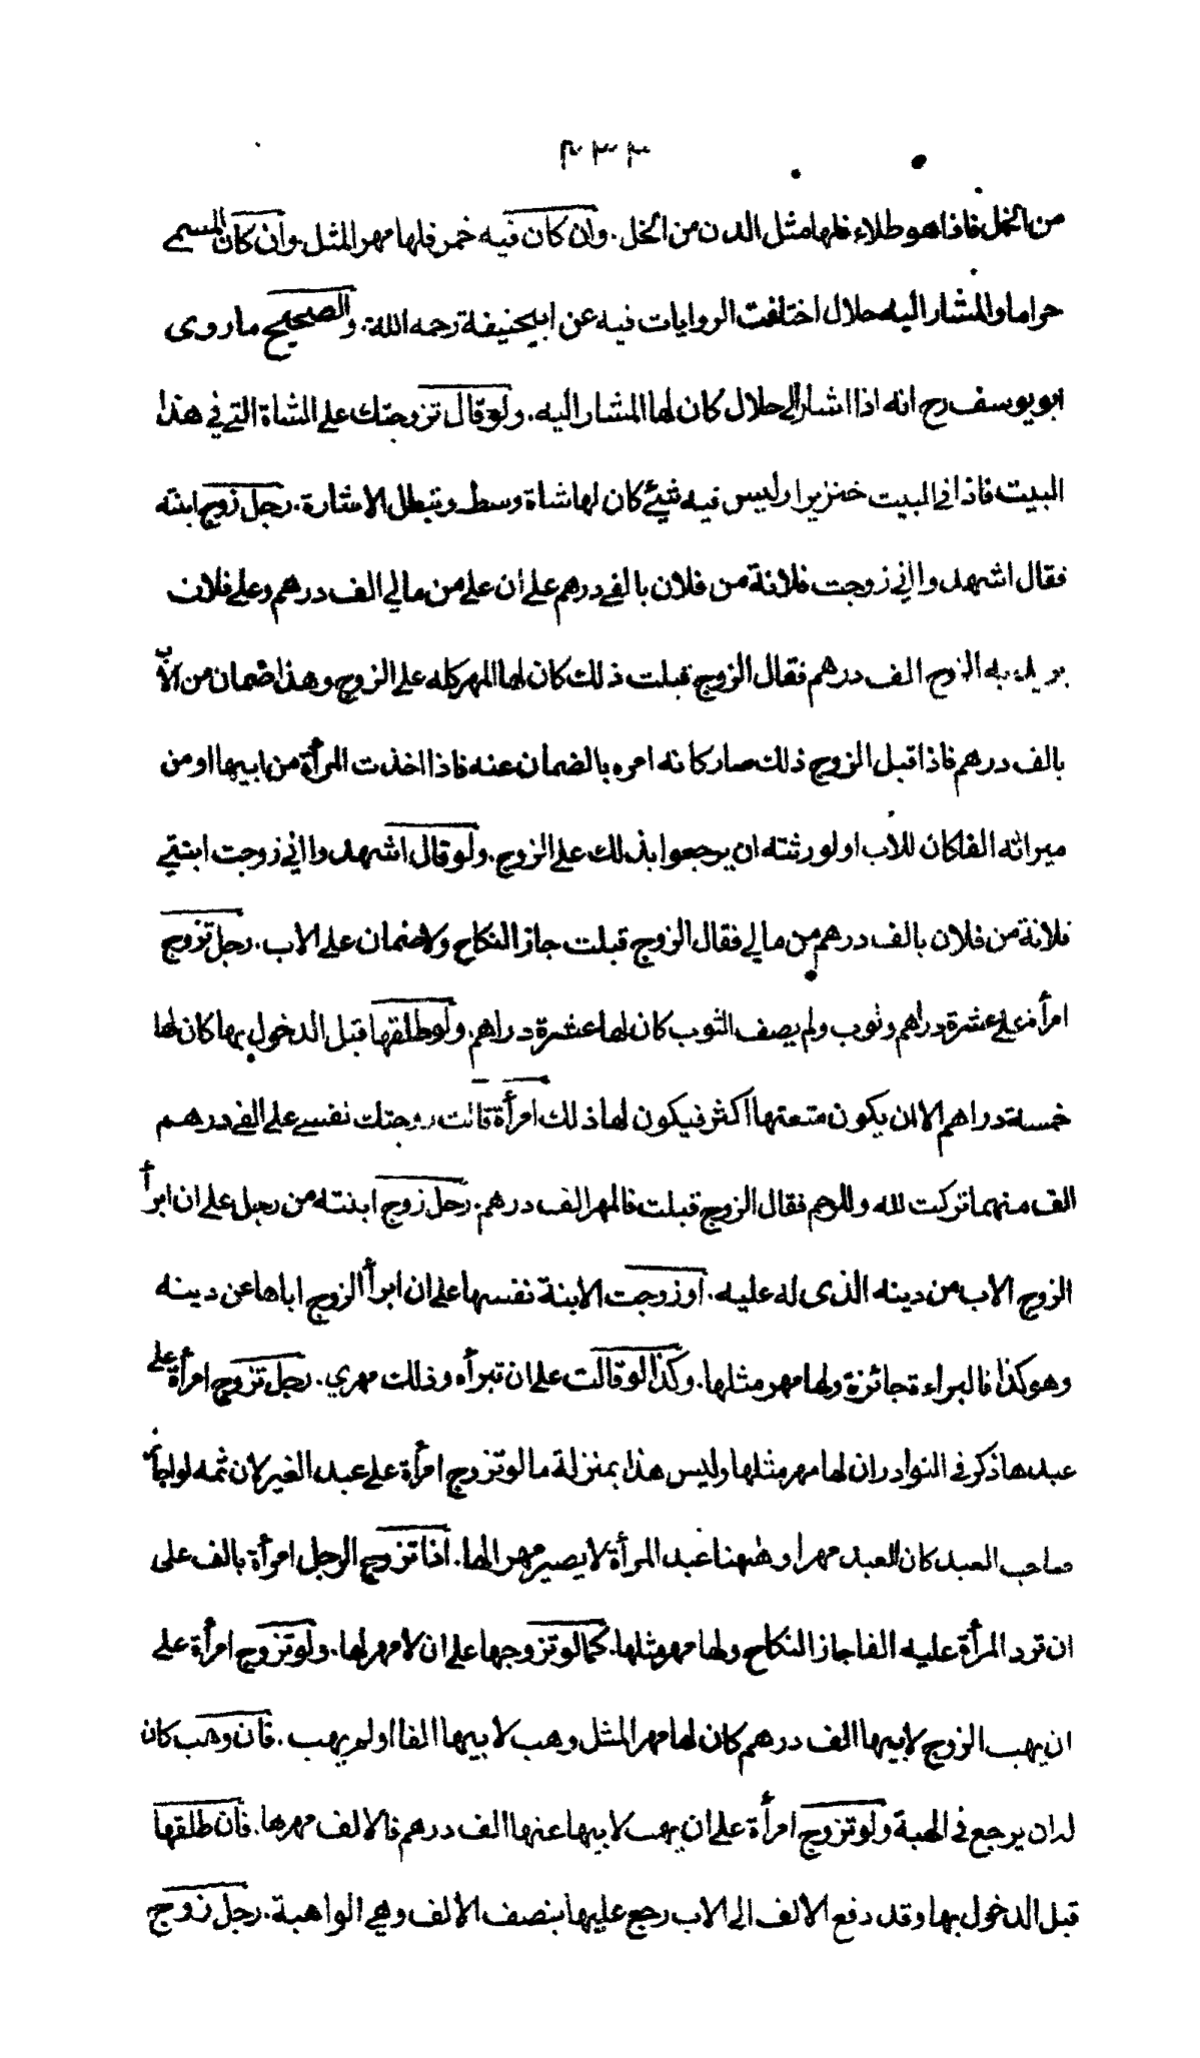 ٣٣٣
من الخل فاذا هو طلاء فلها مثل الدن من الخل. وان كان فيه خمر فلها مهر المثل. وان كان المسمى
حراما والمشار اليه حلال اختلفت الروايات فيه عن ابيحنيفة رحمه الله. والصحيح ما روى
ابو يوسف رح انه اذا اشار الى حلال كان لها المشار اليه. ولو قال تزوجتك على الشاة التي في هذا
البيت فاذا في البيت خنزير او ليس فيه شيئ كان لها شاة وسط وتبطل الاشارة. رجل زوج ابنته
فقال اشهدوا اني زوجت فلانة من فلان بالفي درهم على ان علي من مالي الف درهم وعلى فلان
يريد به الزوج الف درهم فقال الزوج قبلت ذلك كان لها المهر كله على الزوج وهذا ضمان من الاب
بالف درهم فاذا قبل الزوج ذلك صار كانه امره بالضمان عنه فاذا اخذت المرأة من ابيها او من
ميراثه الفا كان للاب او لورثته ان يرجعوا بذلك على الزوج. ولو قال اشهدوا اني زوجت ابنتي
فلانة من فلان بالف درهم من مالي فقال الزوج قبلت جاز النكاح ولا ضمان على الاب. رجل تزوج
امرأة على عشرة دراهم وثوب ولم يصف الثوب كان لها عشرة دراهم. ولو طلقها قبل الدخول بها كان لها
خمسة دراهم الا ان يكون متعتها اكثر فيكون لها ذلك امرأة قالت زوجتك نفسي على الفي درهم
الف منهما تركت لله وللرحم فقال الزوج قبلت فالمهر الف درهم. رجل زوج ابنته من رجل على ان ابرأ
الزوج الاب من دينه الذى له عليه. او زوجت الابنة نفسها على ان ابرأ الزوج اباها عن دينه
وهو كذا فالبراءة جائزة ولها مهر مثلها. وكذا لو قالت على ان تبرأه وذلك مهري. رجل تزوج امرأة على
عبدها ذكر في النوادر ان لها مهر مثلها وليس هذا بمنزلة ما لو تزوج امرأة على عبد الغير لان ثمه لو اجاز
صاحب العبد كان العبد مهرا وههنا عبد المرأة لا يصير مهرا لها. اذا تزوج الرجل امرأة بالف على
ان ترد المرأة عليه الفا جاز النكاح ولها مهر مثلها. كما لو تزوجها على ان لا مهر لها. ولو تزوج امرأة على
ان يهب الزوج لابيها الف درهم كان لها مهر المثل وهب لابيها الفا او لم يهب. فان وهب كان
له ان يرجع في الهبة ولو تزوج امرأة على ان يهب لابيها عنها الف درهم فالالف مهرها. فان طلقها
قبل الدخول بها وقد دفع الالف الى الاب رجع عليها بنصف الالف وهي الواهبة. رجل زوج